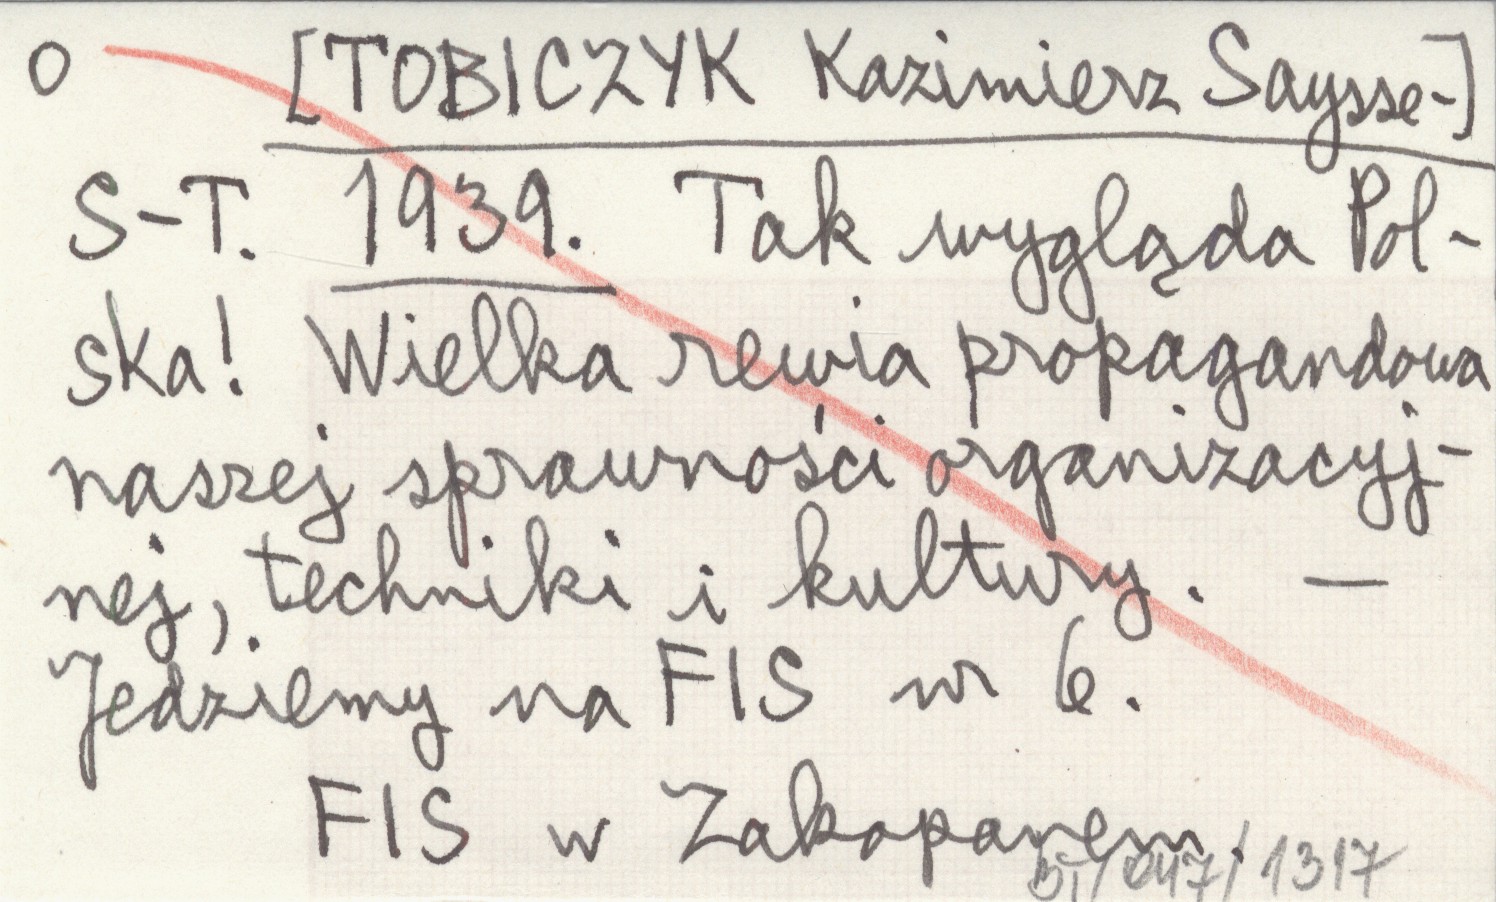 O [TOBICZYK Kazimierz Saysse-]
S-T. 1939. Tak wygląda Pol-
ska! Wielka rewia propagandowa
naszej sprawności organizacyj-
nej, techniki i kultury. —
Jedziemy na FIS nr 6.
FIS w Zakopanem.
/ 1317